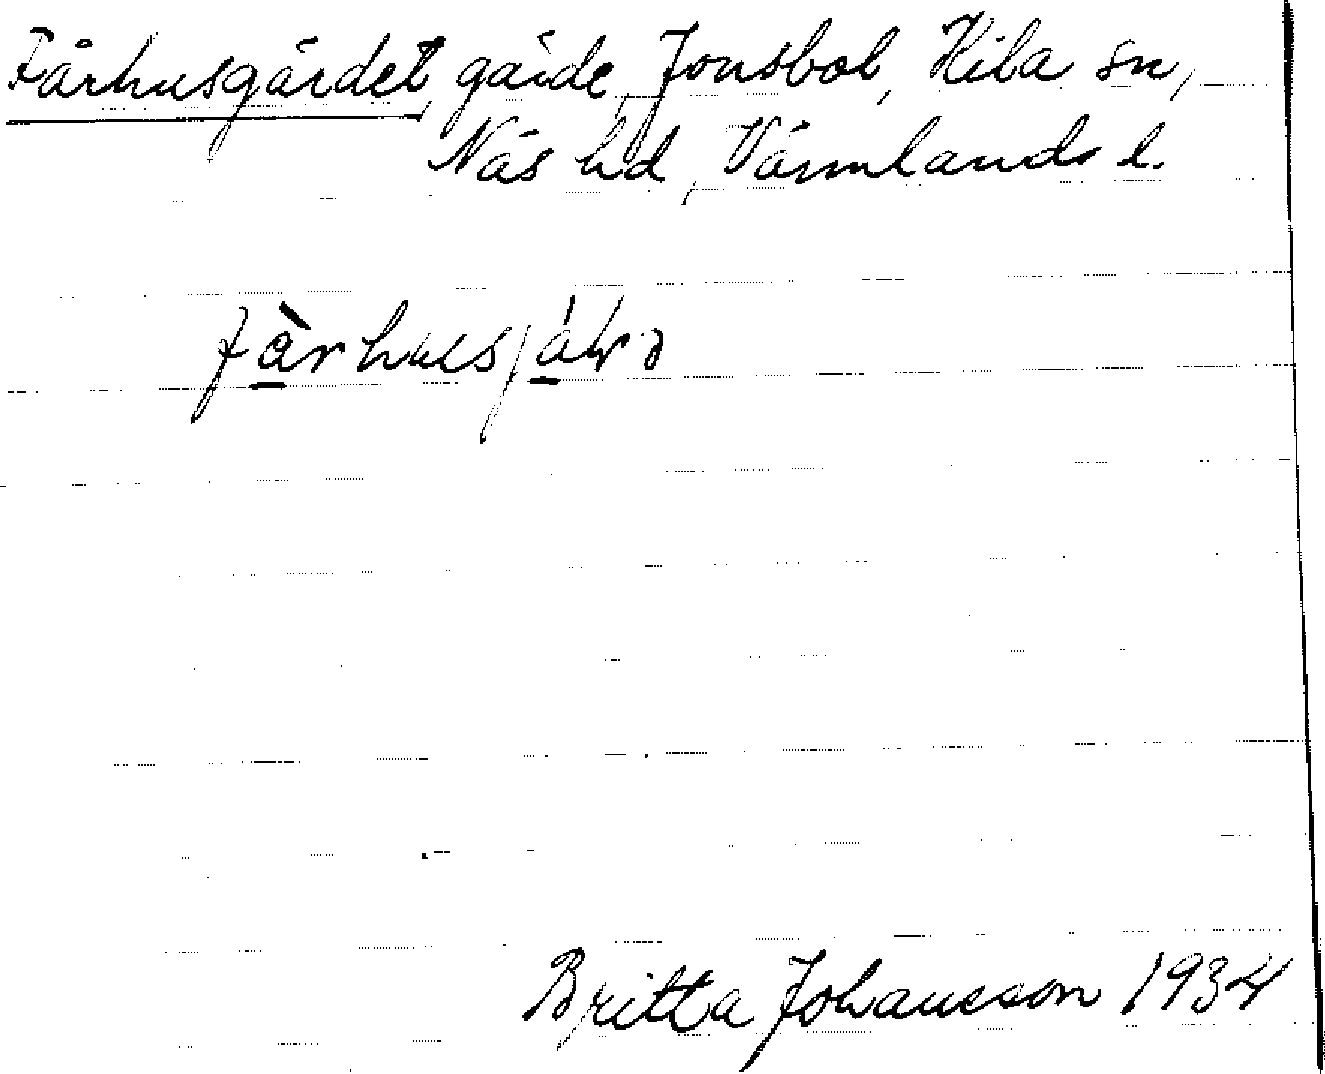 Fårhusgärdet, gärde, Jonsbol, Kila sn,
Näs hd, Värmlands l.
Britta Johansson 1934